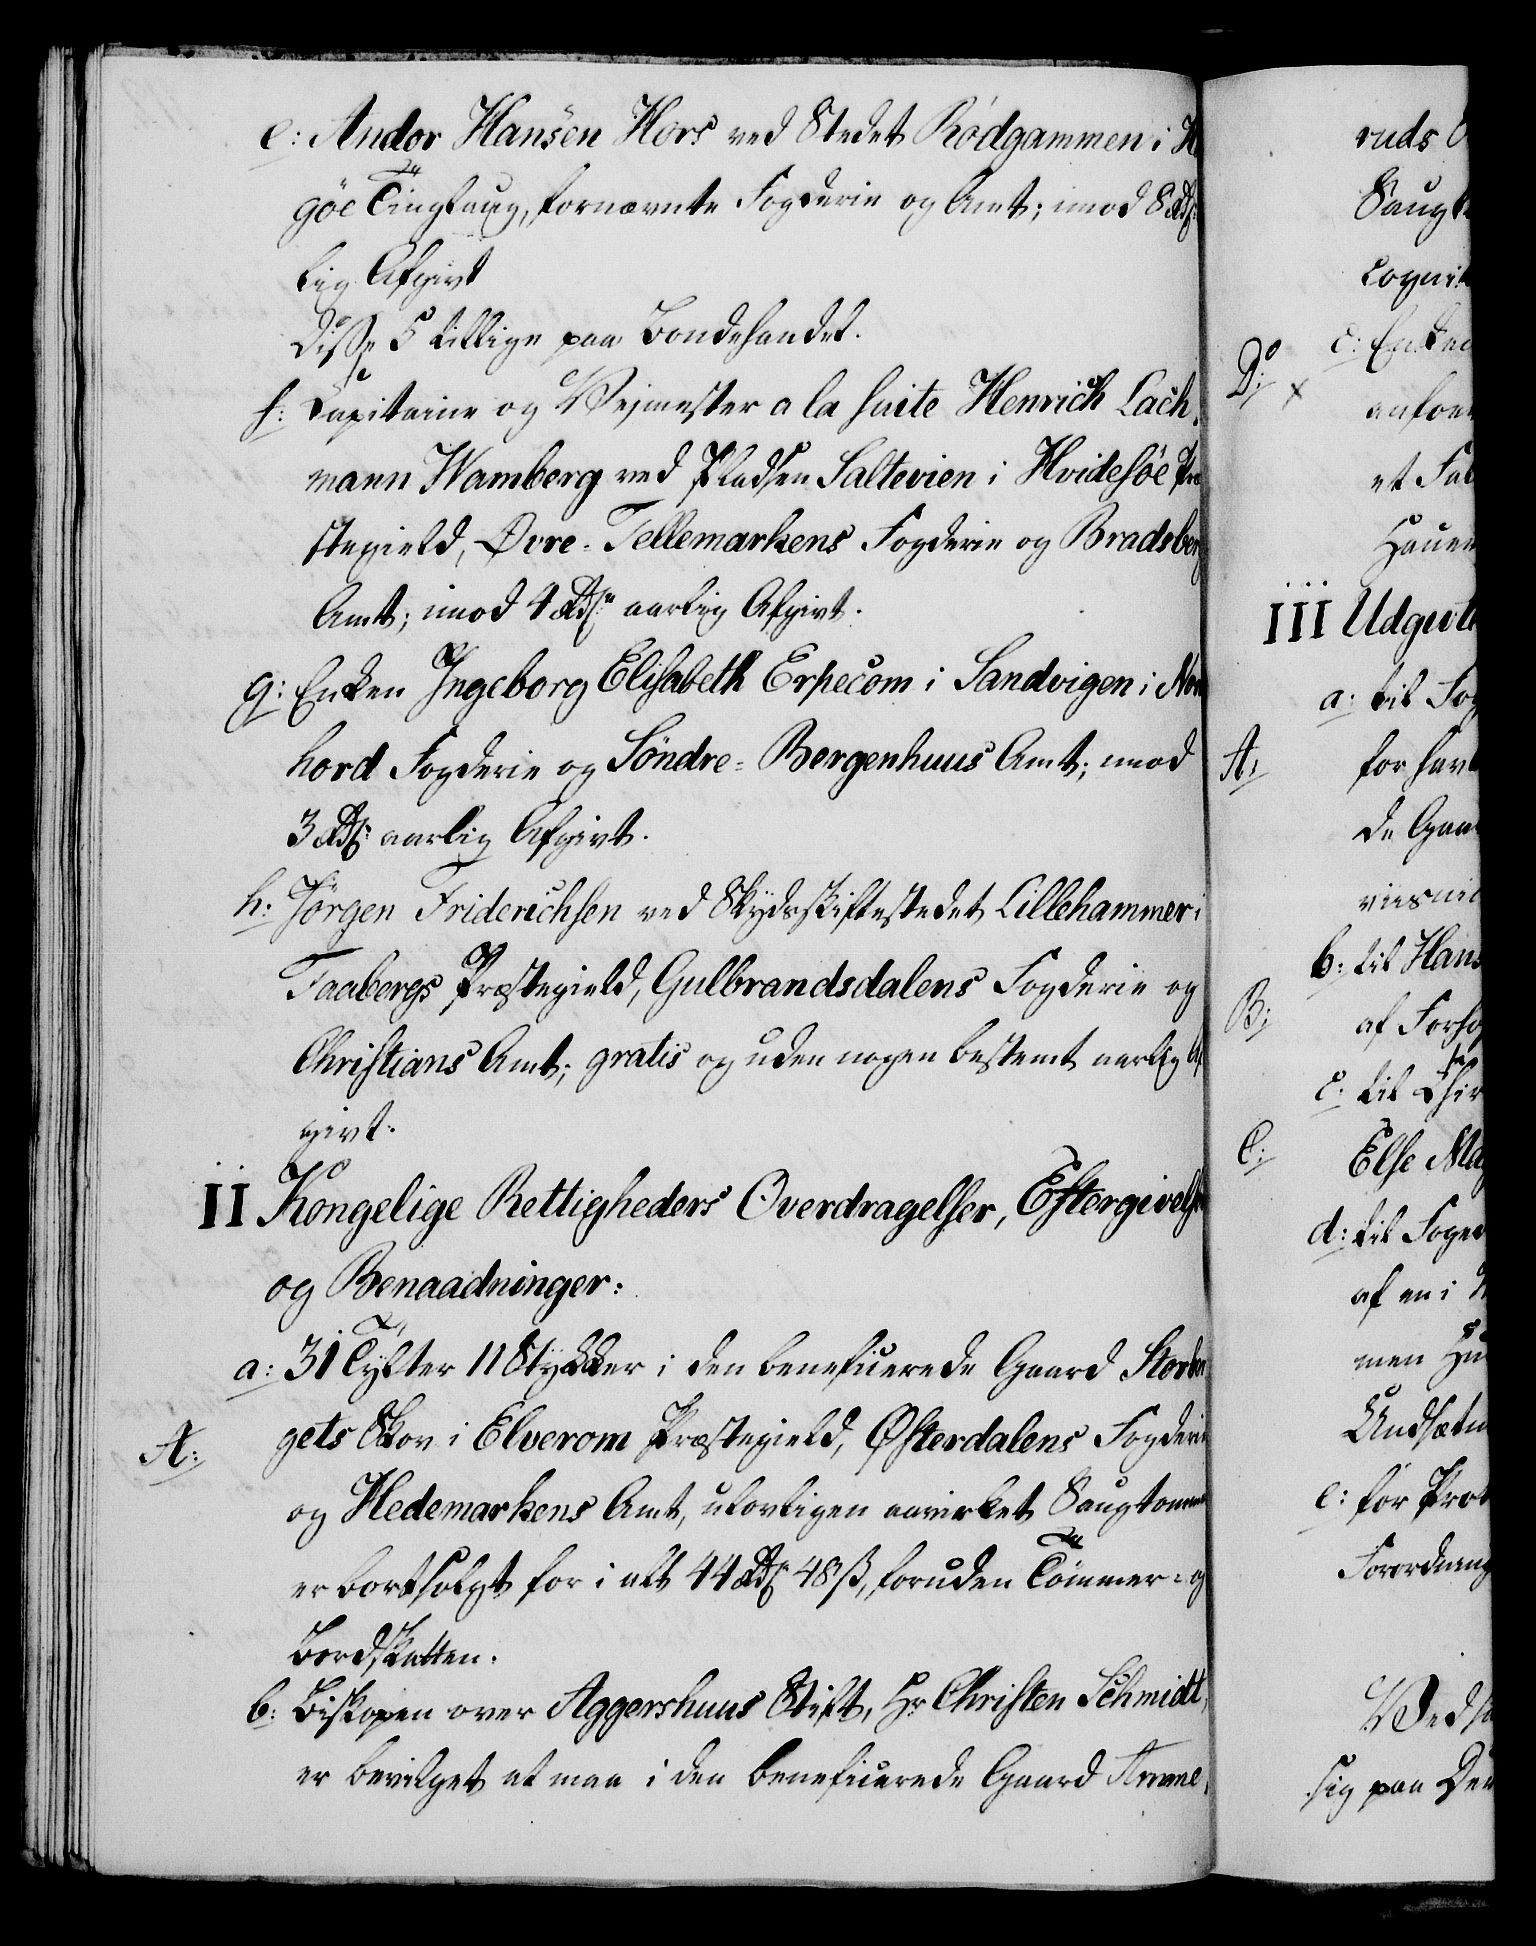 e: Andor Hansen Hors ved Stedet Rödgammen i
göe Tinglaug, fornævnte Fogderie og Amt; imod 8 Rd
lig Afgivt
disse 5 tillige paa Bondehandel.
f: Capitaine og Vejmester a la suite Henrich Lach-
mann Wamberg ved Pladsen Saltevien i Hvidesöe Præ
stegield, Øvre-Tellemarkens Fogderie og Bradsberg
Amt; imod 4 Rdr aarlig Afgivt.
g: Enken Ingeborg Elisabeth Erpecom i Sandvigen i Nord
hord Fogderie og Söndre-Bergenhuus Amt; imod
3 Rd aarlig Afgivt.
h: Jörgen Friderichsen ved Skydsskiftestedet Lillehammer i
Faabergs Præstegield, Gulbrandsdalens Fogderie og
Christians Amt; gratis og uden nogen bestemt aarlig Af
givt.
II Kongelige Rettigheders Overdragelser, Eftergivelser
og Benaadninger:
a: 31 Tylter 11 Stykker i den beneficerede Gaard Storber
A:
gets Skov i Elverom Præstegield, Østerdalens Fogderie
og Hedemarkens Amt, ulovligen avirket Saugtømmer
er bortsolgt for i alt 44 Rdr 48 ß, foruden Tömmer- og
Bordskatten.
b: Biskopen over Aggershuus Stift, Hr Christen Schmidt,
er bevilget at maa i den beneficerede Gaard Arnne-
ruds
Saug
cogni
D:
c: Enken
et
III Udgivte
a: til Fog
A:
for
de Gaar
b: til Hans
B:
af
c: til
C:
Else Mag
d: til Foged
af en i
men
Undsætn
e: for Prov
Forordning
Ved
sig paa Den